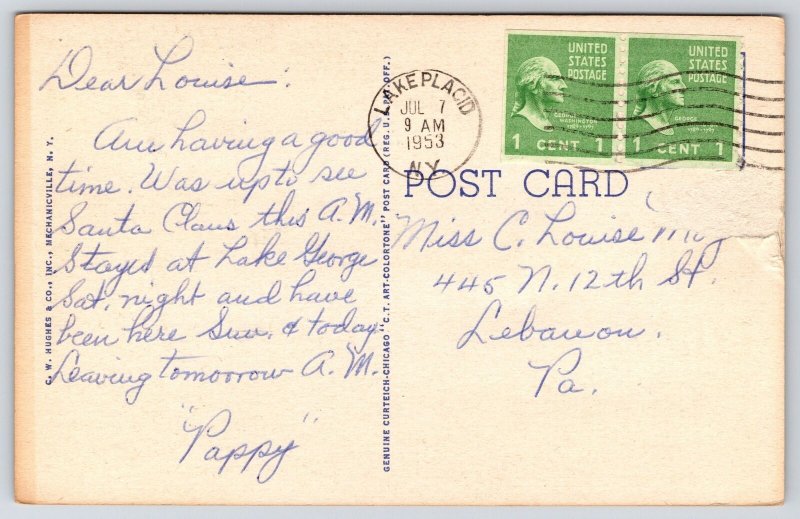 Dear Louise:
Am having a good
time. Was up to see
Santa Claus this A.M.
Stayed at Lake George
Sat. night and have
been here Sun. & today
Leaving tomorrow A.M.
"Pappy"
C. W. HUGHES & CO., INC., MECHANICVILLE, N. Y.
GENUINE CURTEICH-CHICAGO "C.T. ART-COLORTONE" POST CARD (REG. U.S. PAT. OFF.)
LAKE PLACID
JUL 7
9 AM
1953
N.Y.
UNITED
STATES
POSTAGE
GEORGE
WASHINGTON
1789-1797
1 CENT 1
UNITED
STATES
POSTAGE
GEORGE
1789-1797
1 CENT 1
POST CARD
Miss C. Louise
445 N. 12th St.
Lebanon.
Pa.